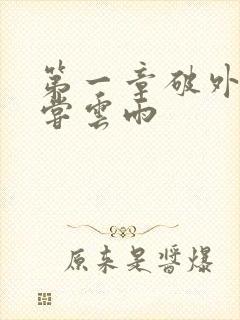 第一章破外
嘗雲雨
原来是醬爆